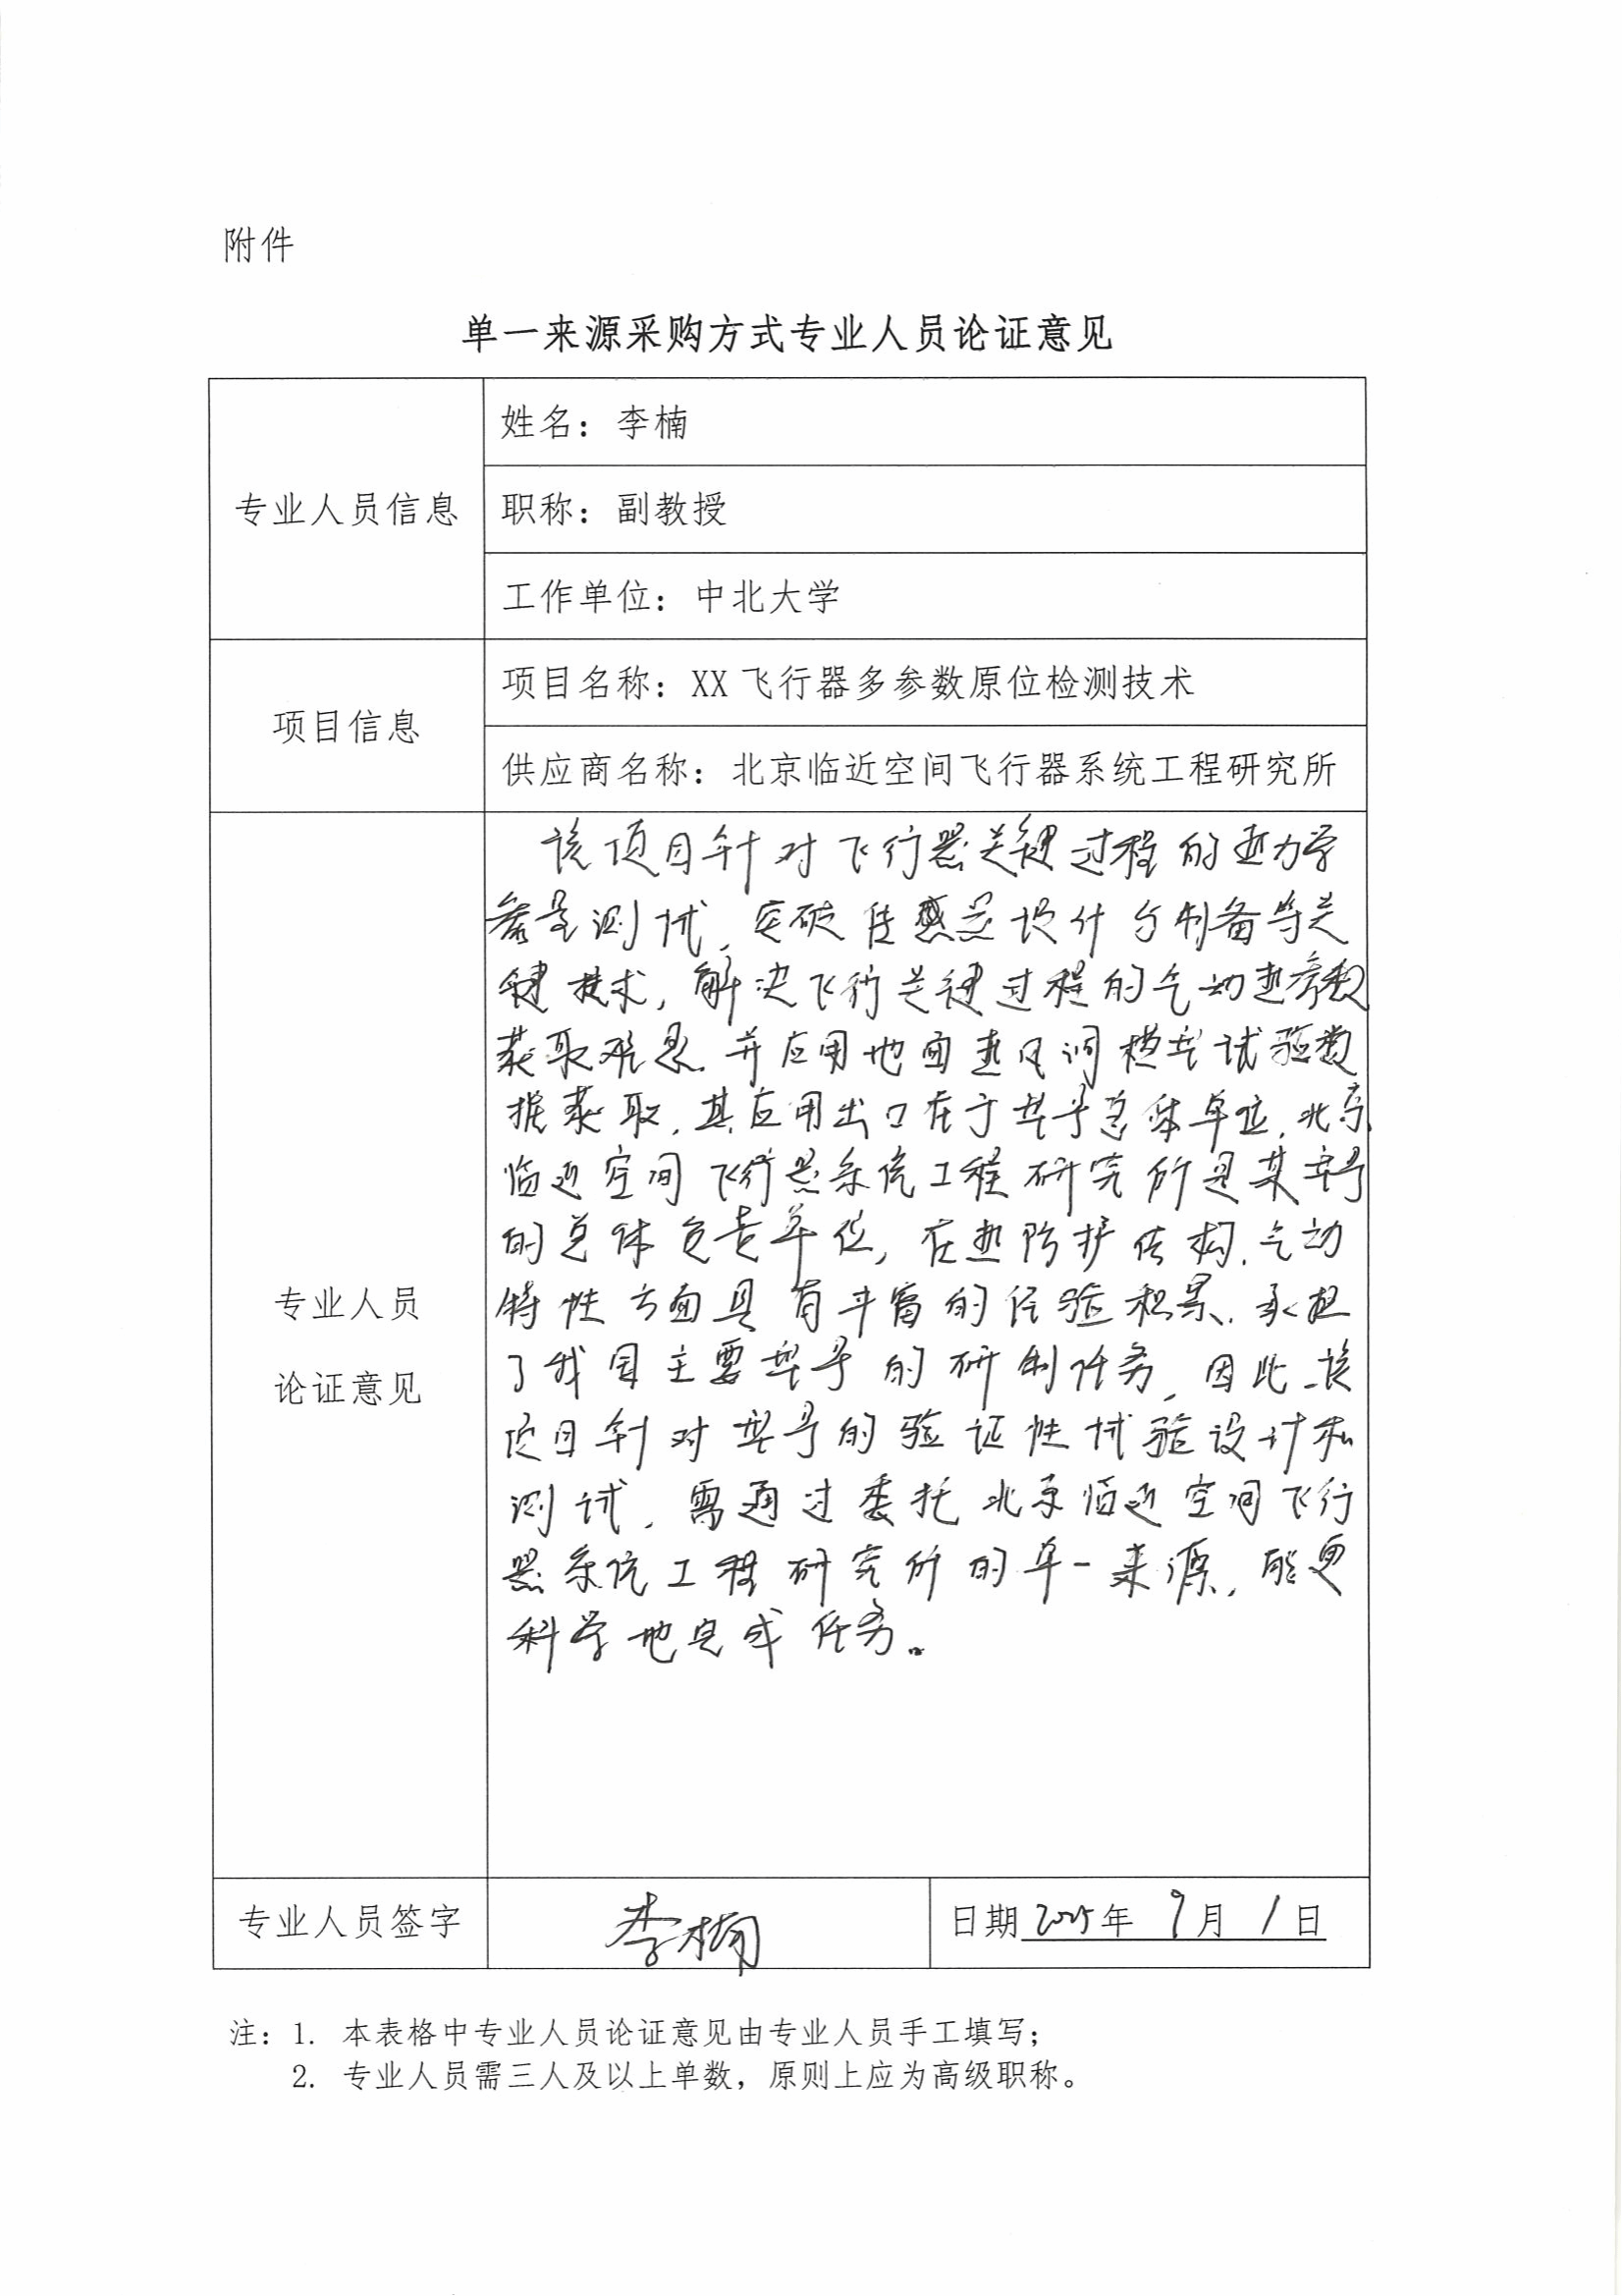 附件
单一来源采购方式专业人员论证意见
专业人员信息
姓名：李楠
职称：副教授
工作单位：中北大学
项目信息
项目名称：XX飞行器多参数原位检测技术
供应商名称：北京临近空间飞行器系统工程研究所
专业人员
论证意见
该项目针对飞行器关键过程的热力学
参量测试，突破传感器设计与制备等关
键技术，解决飞行关键过程的气动热参数
获取难题.并应用地面热风洞模型试验数
据获取.其应用出口在于型号总体单位.北京
临近空间飞行器系统工程研究所是某型号
的总体负责单位，在热防护结构.气动
特性方面具有丰富的经验积累.承担
了我国主要型号的研制任务，因此该
项目针对型号的验证性试验设计和
测试，需通过委托北京临近空间飞行
器系统工程研究所的单一来源，能更
科学地完成任务。
专业人员签字
李楠
日期2025年9月1日
注：1. 本表格中专业人员论证意见由专业人员手工填写；
2. 专业人员需三人及以上单数，原则上应为高级职称。